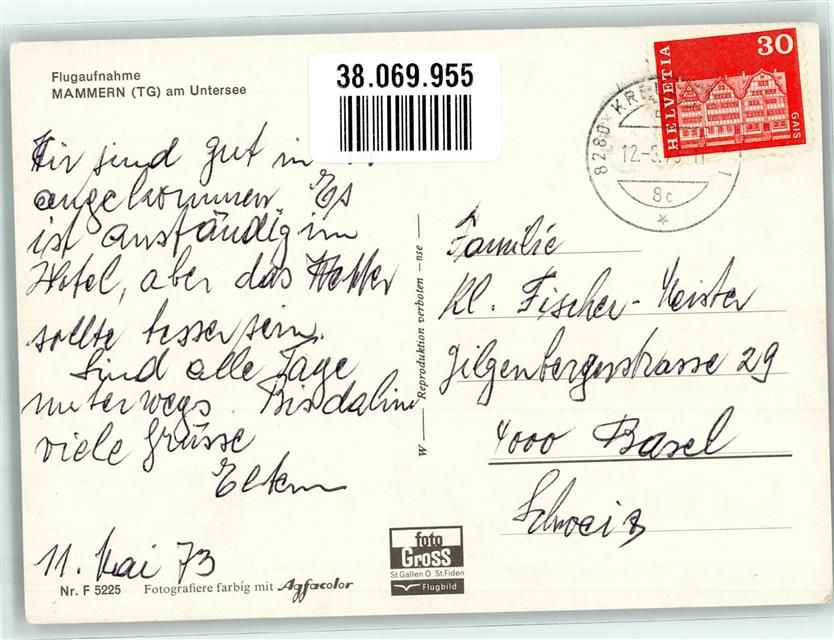 Flugaufnahme
MAMMERN (TG) am Untersee
38.069.955
HELVETIA
30
GAIS
8280 KRE
12.-5.73
8c
Wir sind gut in
angekommen Es
ist anständig im
Hotel, aber das Wetter
sollte besser sein.
Sind alle Tage
unterwegs. Bis dahin
viele Grüsse
Eltern
11. Mai 73
W — Reproduktion verboten – nse —
Familie
Kl. Fischer-Meister
Gilgenbergerstrasse 29
4000 Basel
Schweiz
foto
Gross
St.Gallen O St.Fiden
Flugbild
Nr. F 5225 Fotografiere farbig mit Agfacolor